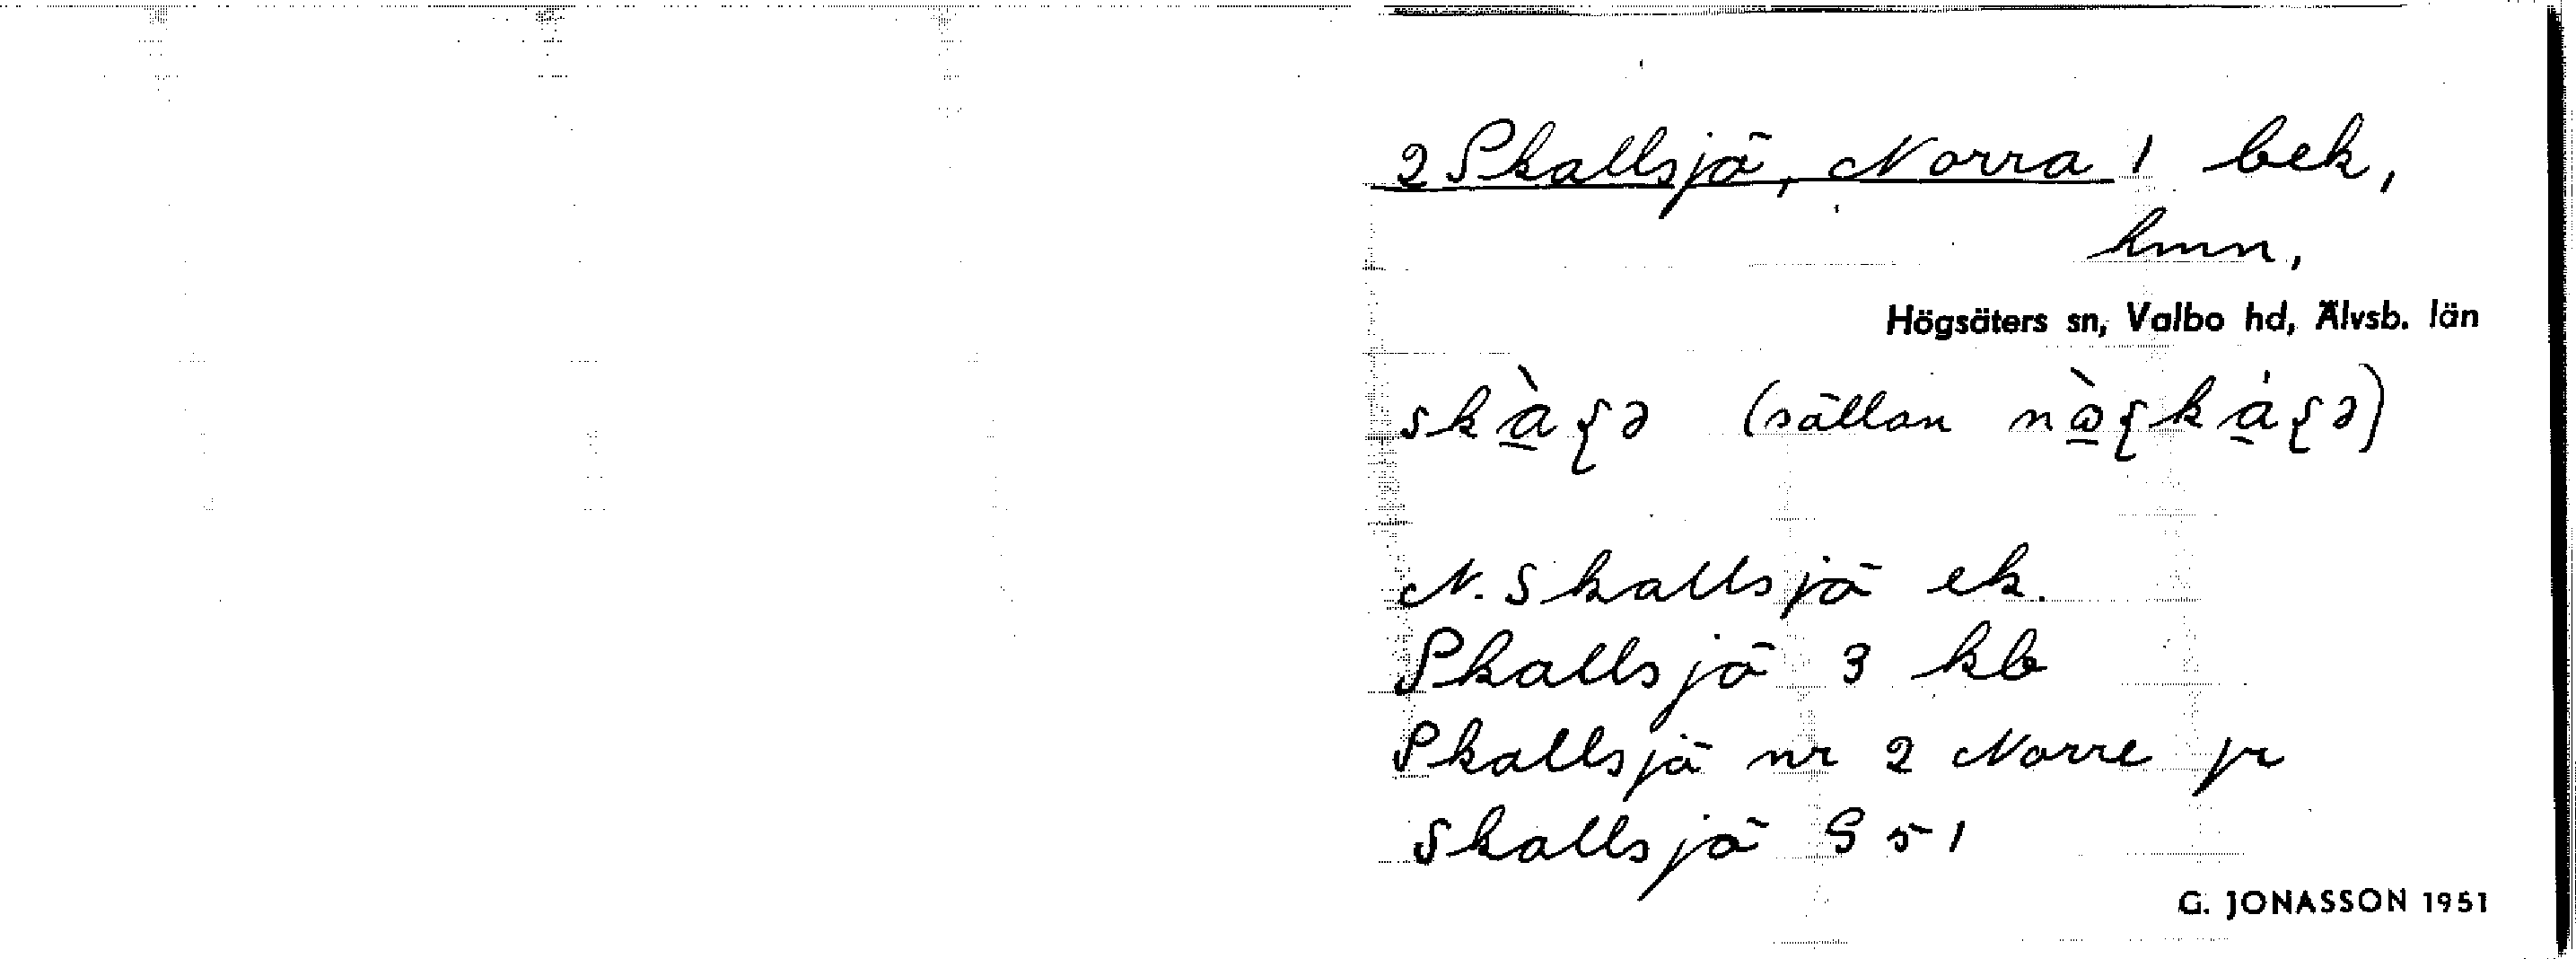 2 Skallsjö, Norra 1 bek,
hmn,
Högsäters sn, Valbo hd, Älvsb. län
(sällan
N. Skallsjö ek.
Skallsjö 3 kb
Skallsjö nr 2 Norre jr
Skallsjö S 51
G. JONASSON 1951